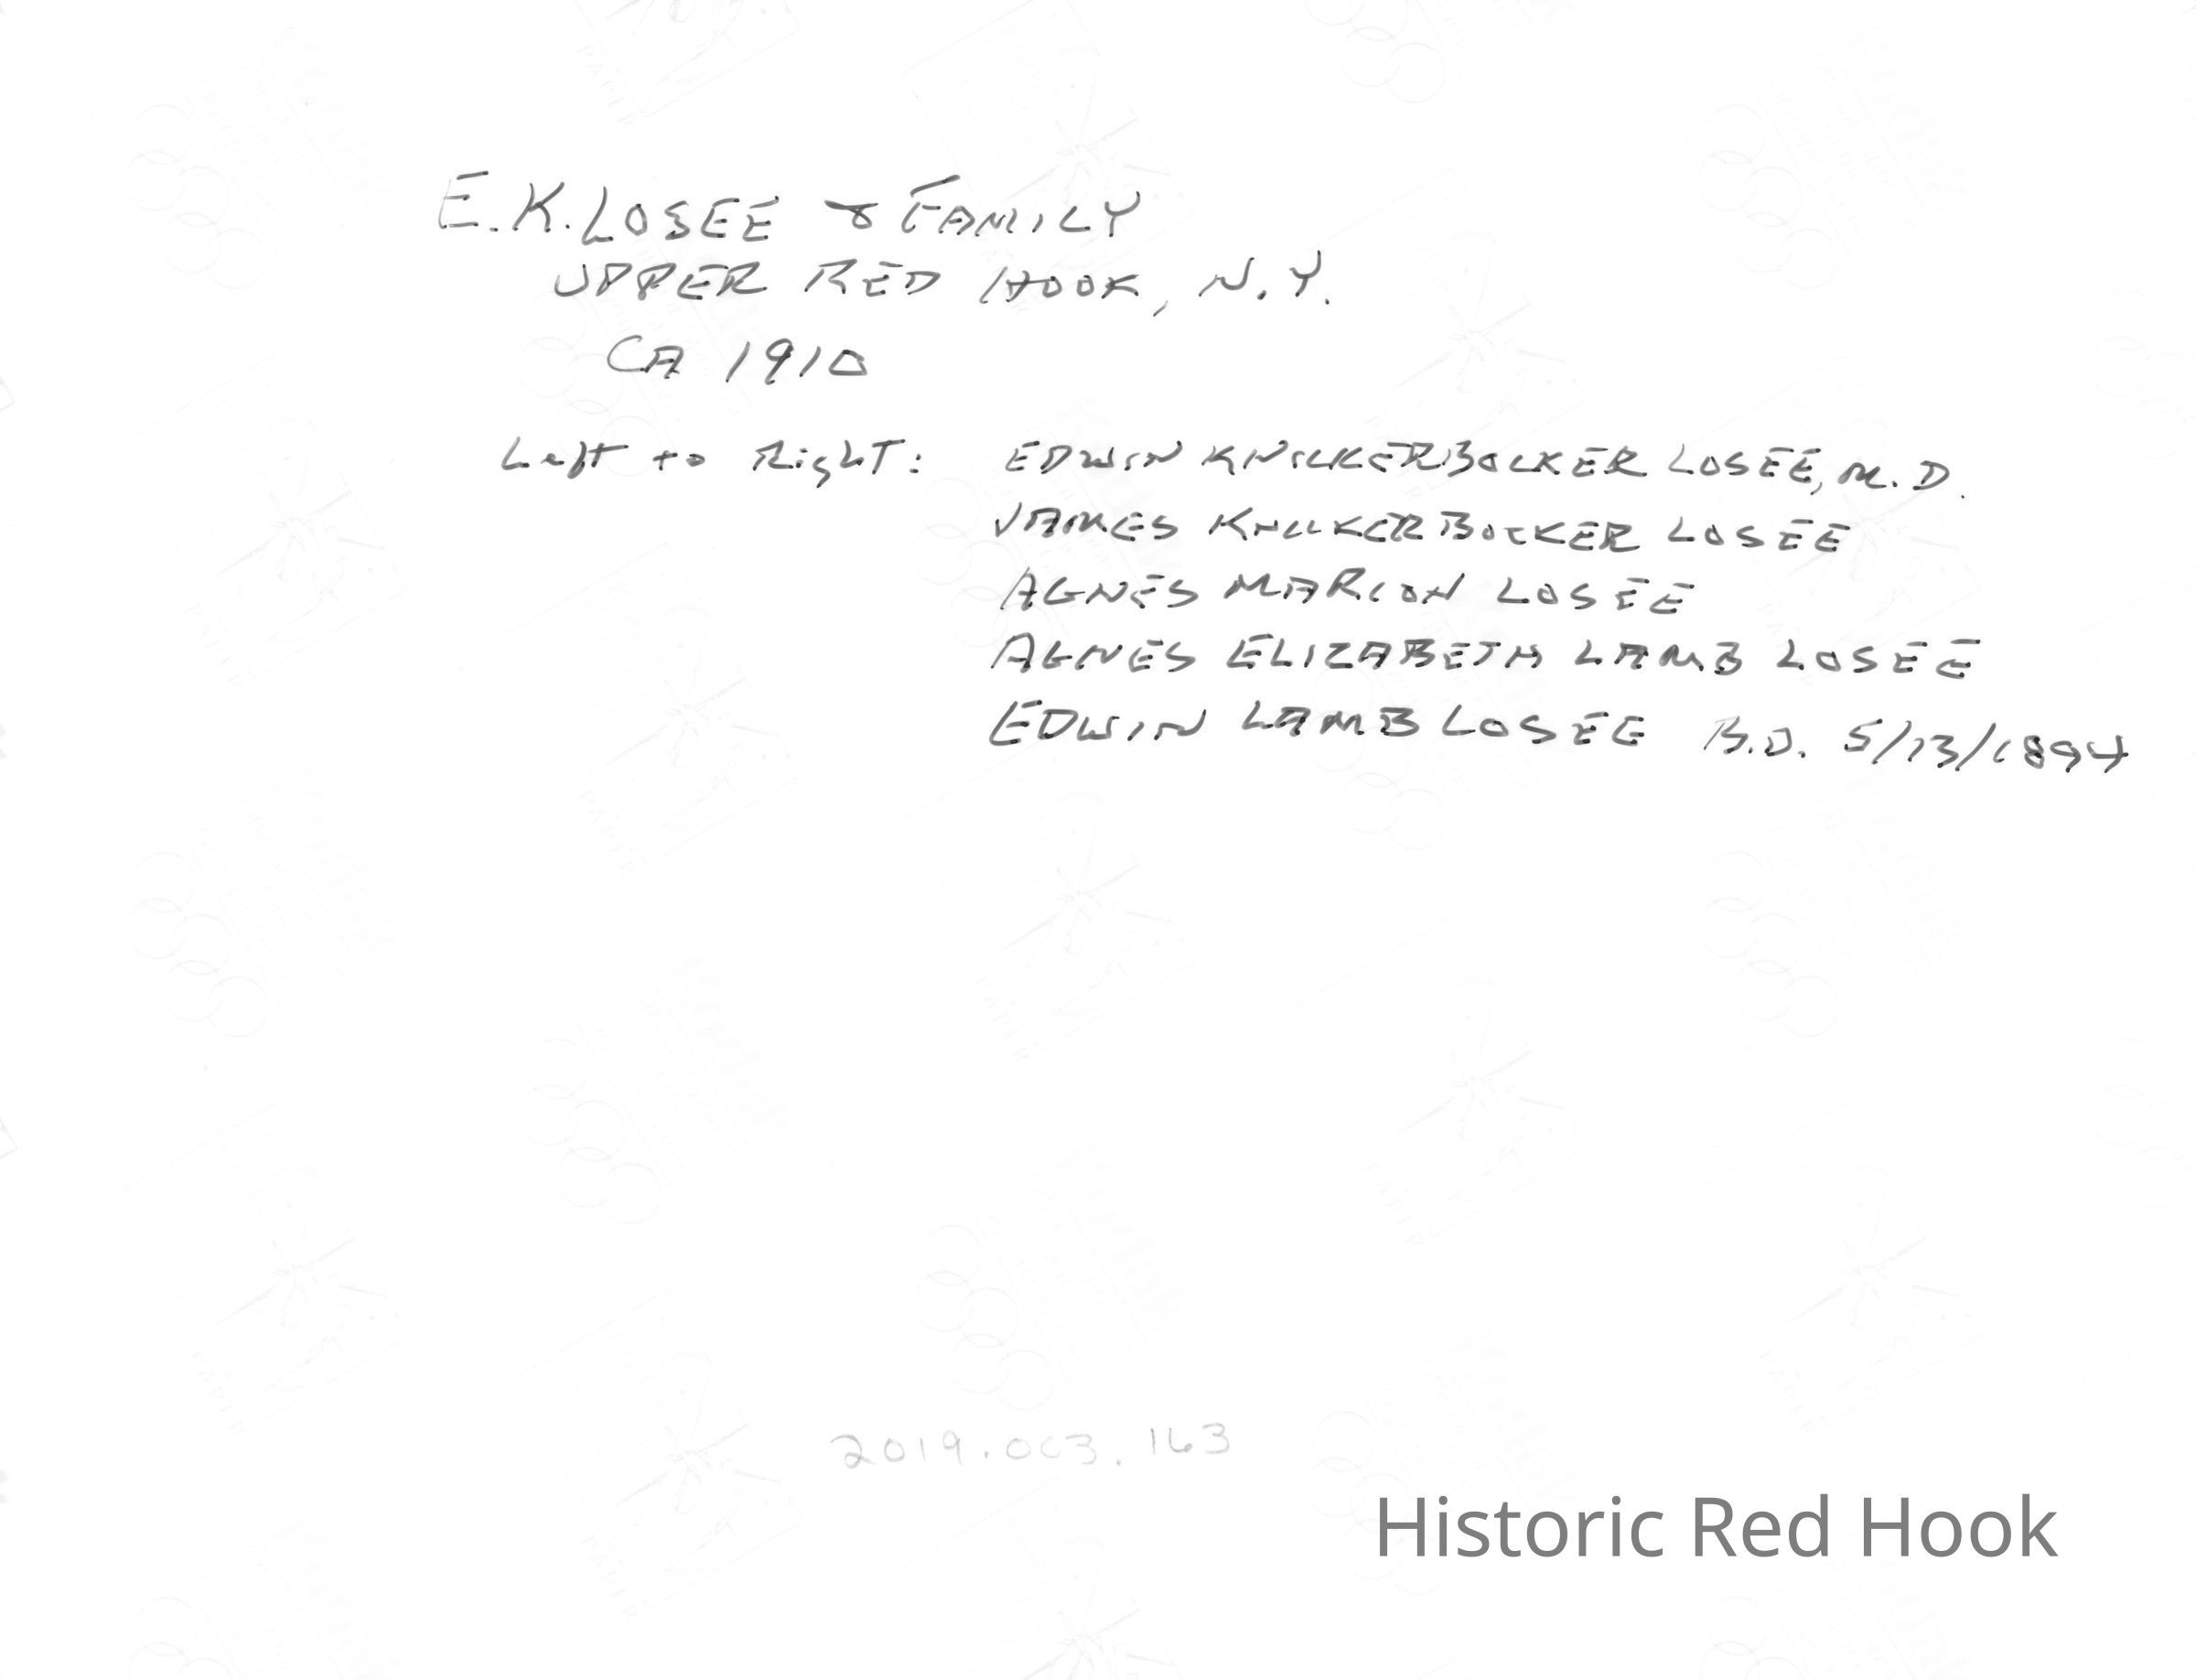 E.K. LOSEE & FAMILY
UPPER RED HOOK, N.Y.
CA 1910
Left to Right: EDWIN KNICKERBOCKER LOSEE, M.D.
JAMES KNICKERBOCKER LOSEE
AGNES MARION LOSEE
AGNES ELIZABETH LAMB LOSEE
EDWIN LAMB LOSEE B.D. 5/13/1894
2019.003.163
Historic Red Hook